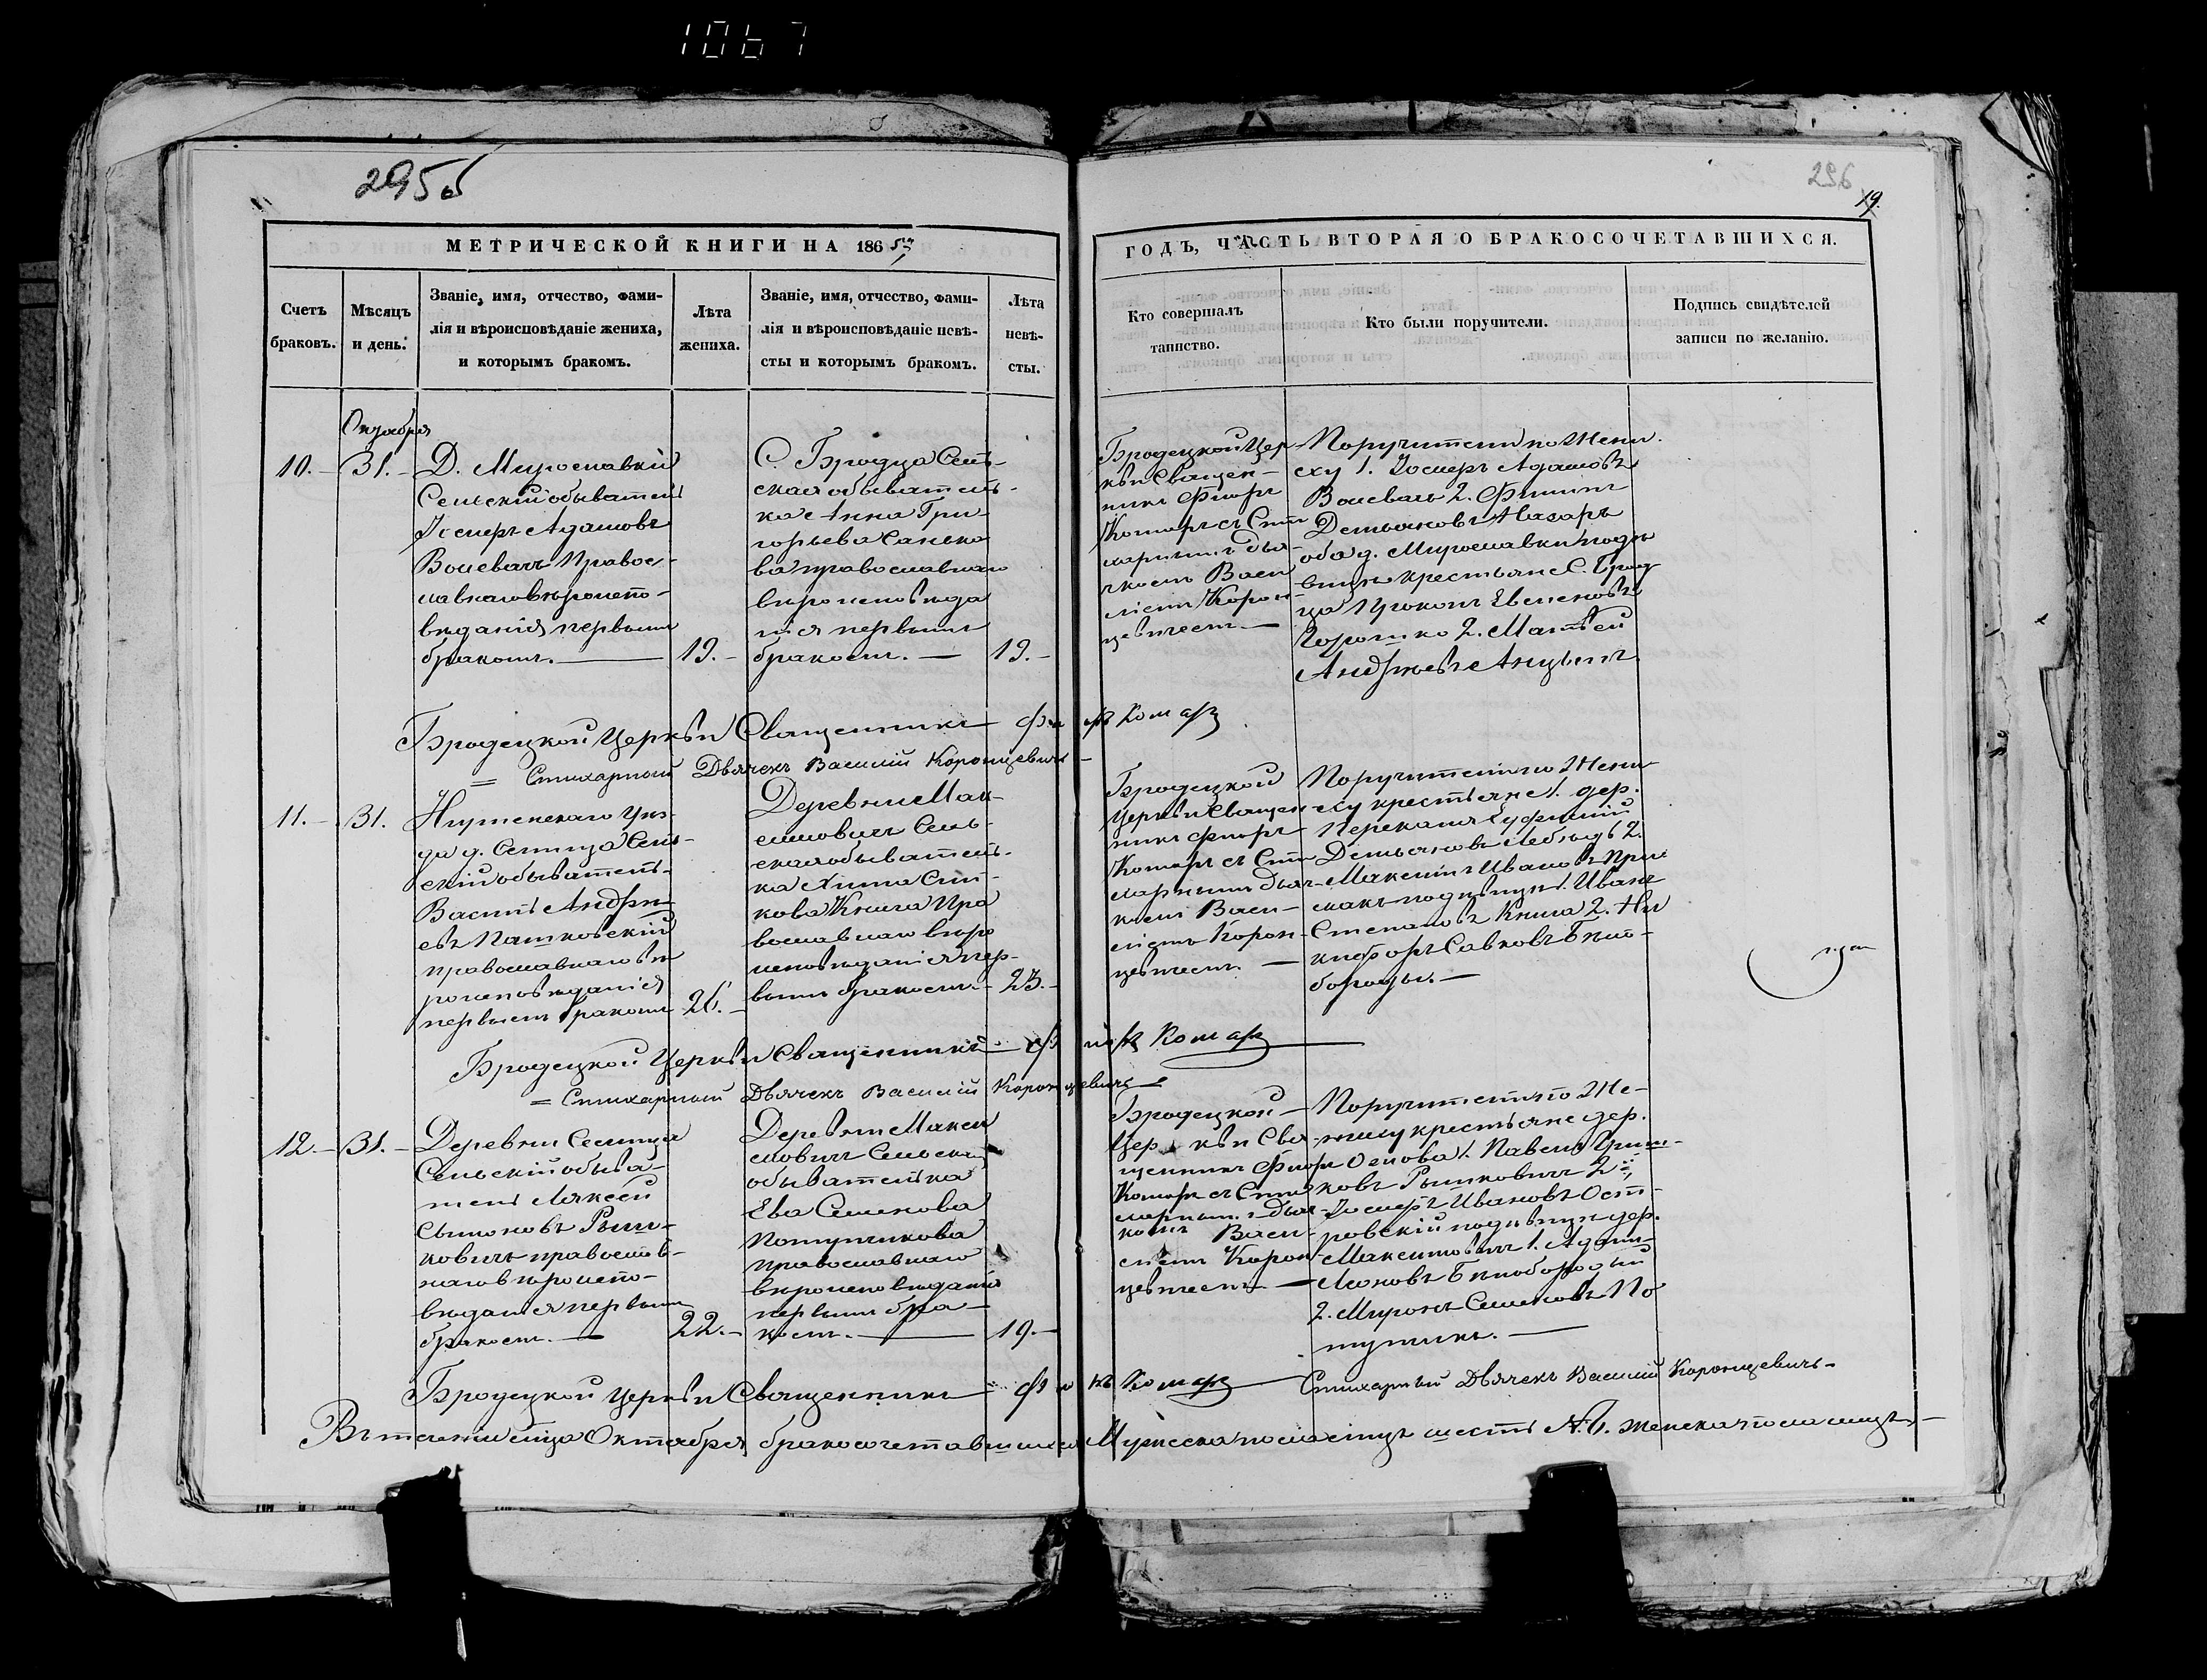 1067
295 об
296
19.
МЕТРИЧЕСКОЙ КНИГИ НА 1865й
ГОДЪ, ЧАСТЬ ВТОРАЯ О БРАКОСОЧЕТАВШИХСЯ.
Счетъ браковъ.
Мѣсяцъ и день.
Званіе, имя, отчество, фами-
лія и вѣроисповѣданіе жениха,
и которымъ бракомъ.
Лѣта
жениха.
Званіе, имя, отчество, фами-
лія и вѣроисповѣданіе невѣ-
сты и которымъ бракомъ.
Лѣта
невѣ-
сты.
Кто совершалъ
таинство.
Кто были поручители.
Подпись свидѣтелей
записи по желанію.
Октября
10.
31.
Д. Мирославки
Сельскій обыватель
Іосифъ Адамовъ
Правос-
лавнаго вѣроиспо-
вѣданія первымъ
бракомъ.
19.
С. Бродца Сель-
ская обыватель-
ка Анна Гри-
горьева
ва православнаго
вѣроисповѣда
нія первымъ
бракомъ.
19.
Бродецкой Цер
кви Священ-
никъ Флоръ
Комаръ съ Сти
харнымъ дья-
чкомъ Васи
ліемъ Корон-
цевичемъ
Поручители по Жени
ху 1. Іосифъ Адамовъ
2. Филипъ
Демьяновъ Назаръ
оба д. Мирославки по не
вѣстѣ крестьяне С. Брод
ца Прокопъ
2. Матвей
Андреевъ
Бродецкой Церкви Священникъ Флоръ Комаръ
= Стихарный Дьячекъ Василій Коронцевичъ
11.
31.
Игуменскаго Уѣз-
да д. Селища Сель-
скій обыватель
Василь Андре-
евъ Пашковскій
православнаго вѣ
роисповѣданія
первымъ бракомъ
26.
Деревни Мак-
симовичъ Сель-
ская обыватель-
ка
кова Книга Пра
вославнаго вѣро
исповѣданія пер-
вымъ бракомъ.
23.
Бродецкой
Церкви Священ
никъ Флоръ
Комаръ съ Сти
харнымъ дьяч-
комъ Васи-
ліемъ Корон-
цевичемъ
Поручители по Жени-
ху крестьяне 1. дер.
Демьяновъ 2.
Максимъ Ивановъ
по невѣстѣ 1. Иванъ
Степановъ Книга 2. Ни
кифоръ Савковъ Бѣло-
бороды.
Бродецкой Церкви Священникъ Флоръ Комаръ
= Стихарный Дьячекъ Василій Коронцевичъ
12.
31.
Деревни Селища
Сельскій обыва-
тель Алексѣй
Сымоновъ Рыш-
ковичъ православ-
наго вѣроиспо-
вѣданія первымъ
бракомъ.
22.
Деревни Макси
мовичъ Сельская
обывателька
Ева Семенова
Потупчикова
православнаго
вѣроисповѣданія
первымъ бра-
комъ.
19.
Бродецкой
Церкви Свя-
щенникъ Флоръ
Комаръ съ Сти
харнымъ дьяч-
комъ Васи-
ліемъ Корон-
цевичемъ
Поручители по Же-
ниху крестьяне дер.
Осова 1. Павелъ
ковъ Рышковичъ 2
Іосифъ Ивановъ Ост-
ровскій по невѣстѣ дер.
Максимовичъ 1. Адамъ
Бѣлобородый
2. Миронъ Семеновъ По
тупчикъ.
Бродецкой Церкви Священникъ Флоръ Комаръ
Стихарный Дьячекъ Василій Коронцевичъ
Въ теченіи мѣсяца Октября бракосочетавшихся Мужеска пола лицъ шесть № 6. женска пола лицъ